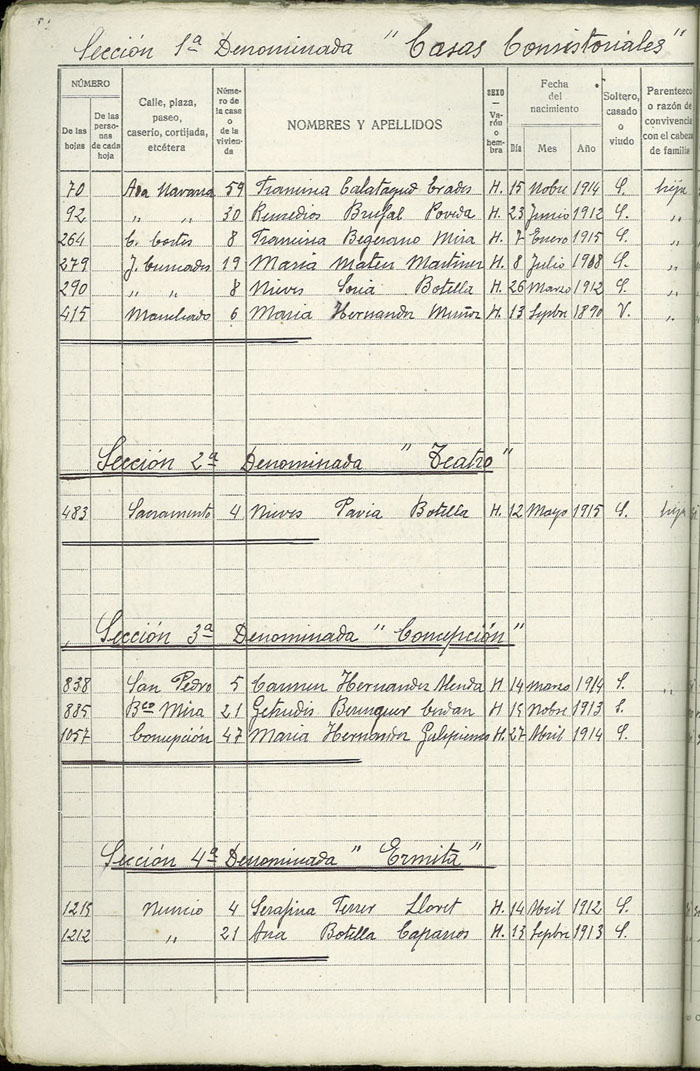 Sección 1ª Denominada "Casas Consistoriales"
NÚMERO
De las hojas
De las personas de cada hoja
Calle, plaza, paseo, caserío, cortijada, etcétera
Número de la casa o de la vivienda
NOMBRES Y APELLIDOS
SEXO — Varón o hembra
Fecha del nacimiento
Día Mes Año
Soltero, casado o viudo
Parentesco o razón de convivencia con el cabeza de familia
70 Ada Navarra 59 Francisca Calatayud H. 15 Nobre 1914 S. hija
92 " " 30 Remedios Brufal Poveda H. 23 Junio 1912 S. "
264 C. Cortes 8 Francisca Begerano Mira H. 7 Enero 1915 S. "
279 19 Maria Mateu Martinez H. 8 Julio 1908 S. "
290 " " 8 Nieves Soria Botella H. 26 Marzo 1912 S. "
415 6 Maria Hernandez Muñoz H. 13 Sepbre 1890 V. "
Sección 2ª Denominada "Teatro"
483 Sacramento 4 Nieves Pavia Botella H. 12 Mayo 1915 S. hija
Sección 3ª Denominada "Concepción"
838 San Pedro 5 Carmen Hernandez H. 14 Marzo 1914 S.
885 Bco Mira 21 Getrudis Berenguer H 15 Nobre 1913 S.
1057 Concepción 47 Maria Hernandez H. 27 Abril 1914 S.
Sección 4ª Denominada "Ermita"
1215 Nuncio 4 Serafina Ferrer Lloret H. 14 Abril 1912 S.
1212 " 21 Ana Botella Caparros H. 13 Sepbre 1913 S.